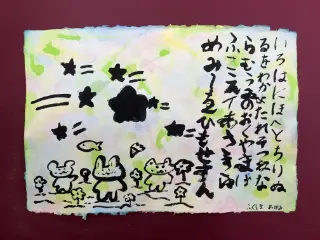 いろはにほへとちりぬ
るをわかよたれそつねな
らむうゐのおくやまけ
ふこえてあさきゆ
めみしゑひもせすん